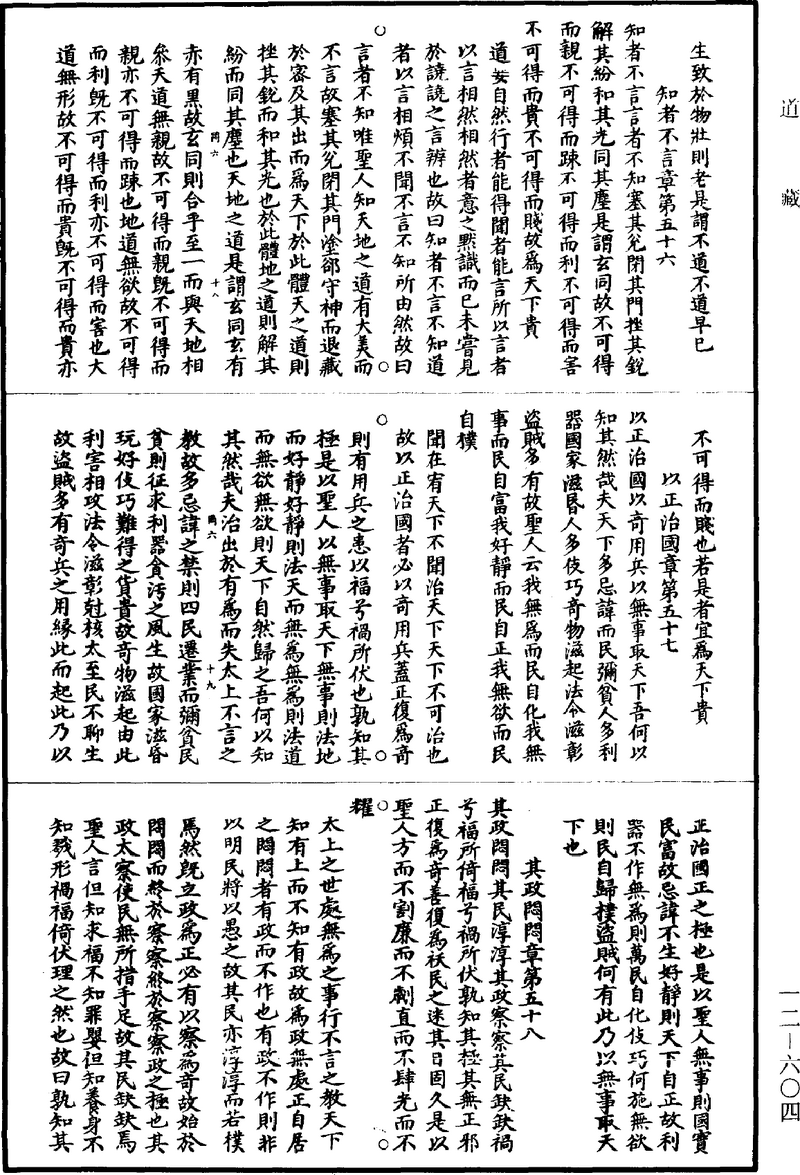 道藏
生致於物壯則老是謂不道不道早已
知者不言章第五十六
知者不言言者不知塞其兊閉其門挫其銳
解其紛和其光同其塵是謂玄同故不可得
而親不可得而踈不可得而利不可得而害
不可得而貴不可得而賤故為天下貴
道妙自然行者能得聞者能言所以言者
以言相然相然者意之黙識而已未嘗見
於譊譊之言辨也故曰知者不言不知道
者以言相煩不聞不言不知所由然故曰
言者不知唯聖人知天地之道有大美而
不言故塞其兊閉其門塗郤守神而退藏
於密及其出而為天下於此體天之道則
挫其銳而和其光也於此體地之道則解其
紛而同其塵也天地之道是謂玄同玄有
亦有黒故玄同則合乎至一而與天地相
叅天道無親故不可得而親旣不可得而
親亦不可得而踈也地道無欲故不可得
而利旣不可得而利亦不可得而害也大
道無形故不可得而貴旣不可得而貴亦
不可得而賤也若是者宜為天下貴
以正治國章第五十七
以正治國以奇用兵以無事取天下吾何以
知其然哉夫天下多忌諱而民彌貧人多利
器國家滋昬人多伎巧奇物滋起法令滋彰
盜賊多有故聖人云我無為而民自化我無
事而民自富我好靜而民自正我無欲而民
自樸
聞在宥天下不聞治天下天下不可治也
故以正治國者必以奇用兵蓋正復為奇
則有用兵之患以福兮禍所伏也孰知其
極是以聖人以無事取天下無事則法地
而好靜好靜則法天而無為無為則法道
而無欲無欲則天下自然歸之吾何以知
其然哉夫治出於有為而失太上不言之
教故多忌諱之禁則四民遷業而彌貧民
貧則征求利器貪污之風生故國家滋昏
玩好伎巧難得之貨貴故奇物滋起由此
利害相攻法令滋彰尅核太至民不聊生
故盜賊多有奇兵之用緣此而起此乃以
正治國正之極也是以聖人無事則國實
民富故忌諱不生好靜則天下自正故利
器不作無為則萬民自化伎巧何施無欲
則民自歸樸盜賊何有此乃以無事取天
下也
其政悶悶章第五十八
其政悶悶其民淳淳其政察察其民缺缺禍
兮福所倚福兮禍所伏孰知其極其無正邪
正復為奇善復為祅民之迷其日固久是以
聖人方而不割廉而不劌直而不肆光而不
耀
太上之世處無為之事行不言之教天下
知有上而不知有政故為政無處正自居
之悶悶者有政而不作也有政不作則非
以明民將以愚之故其民亦淳淳而若樸
焉然旣立政為正必有以察為奇故始於
悶悶而終於察察終於察察政之極也其
政太察使民無所措手足故其民缺缺焉
聖人言但知求福不知罪嬰但知養身不
知戮形禍福倚伏理之然也故曰孰知其
一二—六〇四